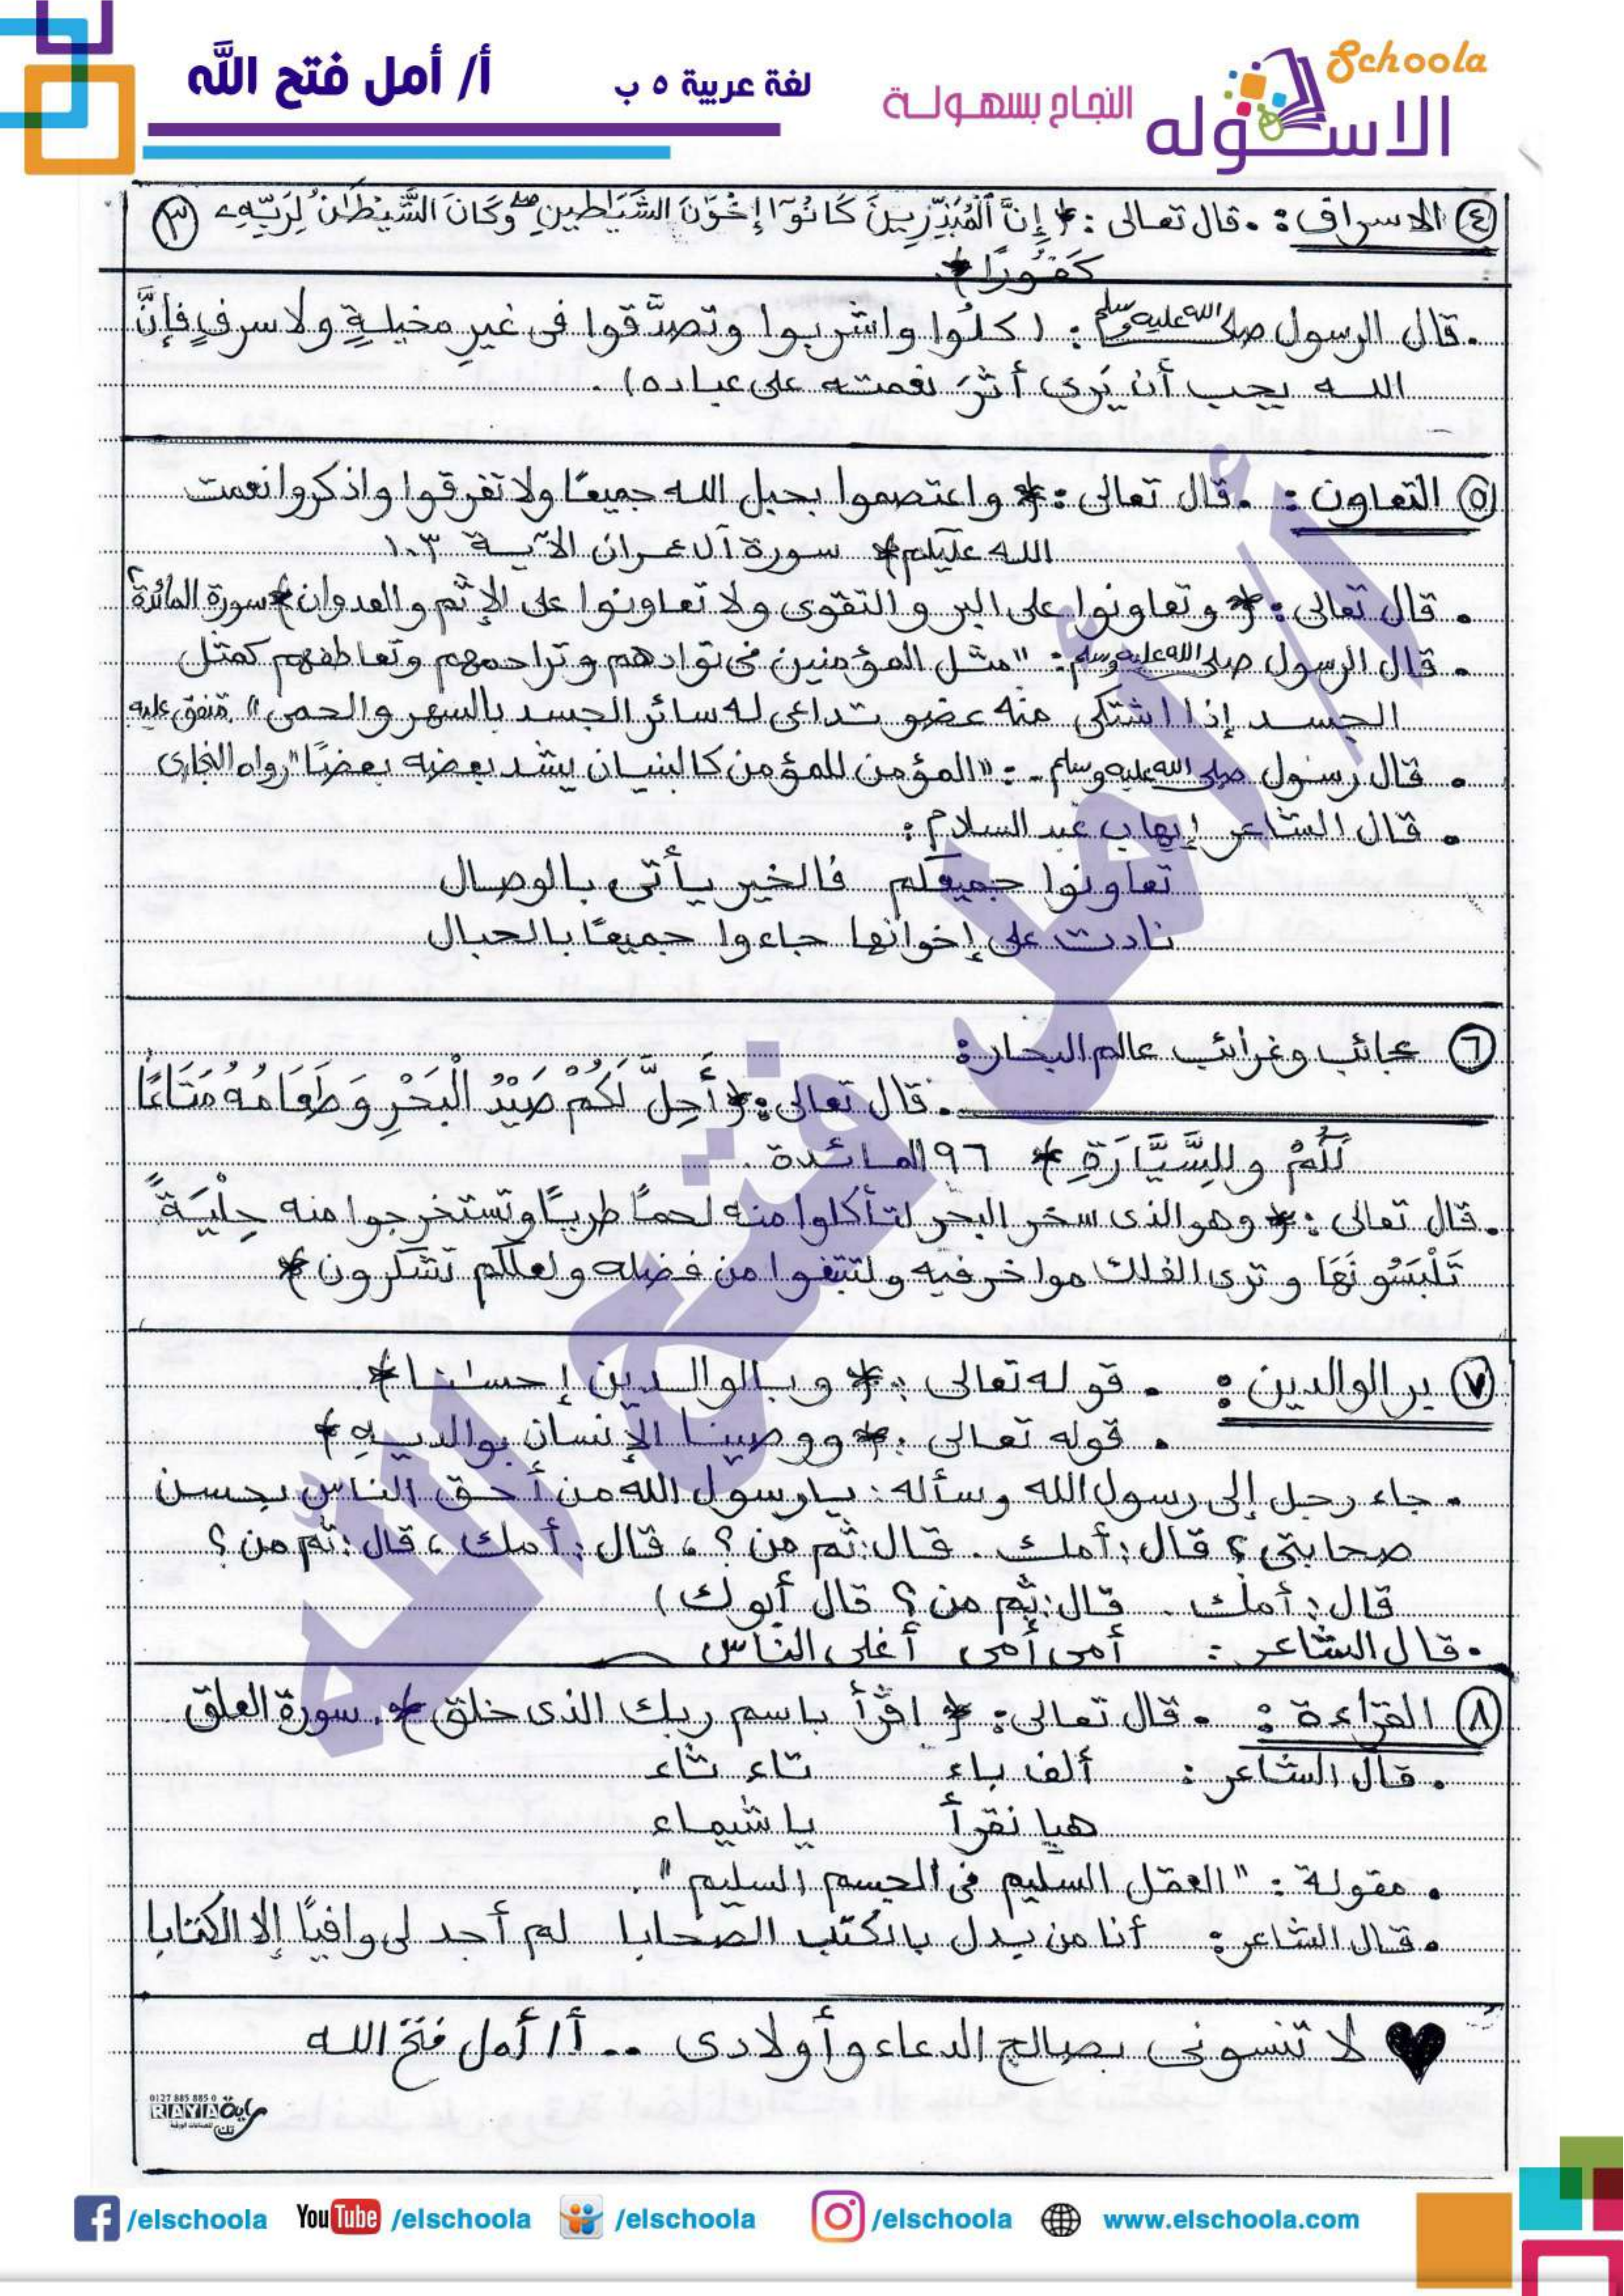 Schoola
الاسكوله
النجاح بسهولة
لغة عربية ٥ ب
أ/ أمل فتح الله
④ الاسراف : . قال تعالى : ﴿ إِنَّ ٱلْمُبَذِّرِينَ كَانُوٓا إِخْوَٰنَ الشَّيَٰطِينِ ۖ وَكَانَ الشَّيْطَٰنُ لِرَبِّهِۦ ③
كَفُورًا ﴾
. قال الرسول صلى الله عليه وسلم : ( كلُوا واشربوا وتصدَّقوا فى غيرِ مخيلةٍ ولا سرفٍ فإنَّ
الله يحب أن يَرى أثرَ نعمته على عباده ) .
⑤ التعاون : . قال تعالى : ﴿ واعتصموا بحبل الله جميعًا ولا تفرقوا واذكروا نعمت
الله عليكم ﴾ سورة آل عمران الآية ١٠٣
. قال تعالى : ﴿ وتعاونوا على البر و التقوى ولا تعاونوا على الإثم والعدوان ﴾ سورة المائدة ٢
. قال الرسول صلى الله عليه وسلم : " مثل المؤمنين فى توادهم وتراحمهم وتعاطفهم كمثل
الجسد إذا اشتكى منه عضو تداعى له سائر الجسد بالسهر والحمى " . متفق عليه
. قال رسول صلى الله عليه وسلم - : " المؤمن للمؤمن كالبنيان يشد بعضه بعضًا " رواه البخارى
. قال الشاعر إيهاب عبد السلام :
تعاونوا جميعكم فالخير يأتى بالوصال
نادت على إخوانها جاءوا جميعًا بالحبال
⑥ عجائب وغرائب عالم البحار :
. قال تعالى : ﴿ أُحِلَّ لَكُمْ صَيْدُ الْبَحْرِ وَطَعَامُهُ مَتَاعًا
لَّكُمْ وللِسَّيَّارَةِ ﴾ ٩٦ المائدة .
. قال تعالى : ﴿ وهو الذى سخر البحر لتأكلوا منه لحمًا طريًا وتستخرجوا منه حِلْيَةً
تَلْبَسُونَهَا وترى الفلك مواخر فيه ولتبتغوا من فضله ولعلكم تشكرون ﴾
⑦ بر الوالدين : . قوله تعالى : ﴿ وبالوالدين إحسٰنا ﴾ .
. قوله تعالى : ﴿ ووصينا الإنسان بوالديهِ ﴾
. جاء رجل إلى رسول الله وسأله : يا رسول الله من أحق الناس بحسن
صحابتى ؟ قال : أمك . قال : ثم من ؟ ، قال : أمك ، قال : ثم من ؟
قال : أمك . قال : ثم من ؟ قال أبوك )
. قال الشاعر : أمى أمى أغلى الناس
⑧ القراءة : . قال تعالى : ﴿ اقرأ باسم ربك الذى خلق ﴾ . سورة العلق .
. قال الشاعر : ألف باء تاء ثاء
هيا نقرأ يا شيماء
. مقولة : " العقل السليم فى الجسم السليم " .
. قال الشاعر : أنا من بدل بالكتب الصحابا لم أجد لى وافيًا إلا الكتابا
♥ لا تنسونى بصالح الدعاء وأولادى .. أ/ أمل فتح الله
0127 885 885 0
RAYA راية
/elschoola YouTube /elschoola /elschoola /elschoola www.elschoola.com